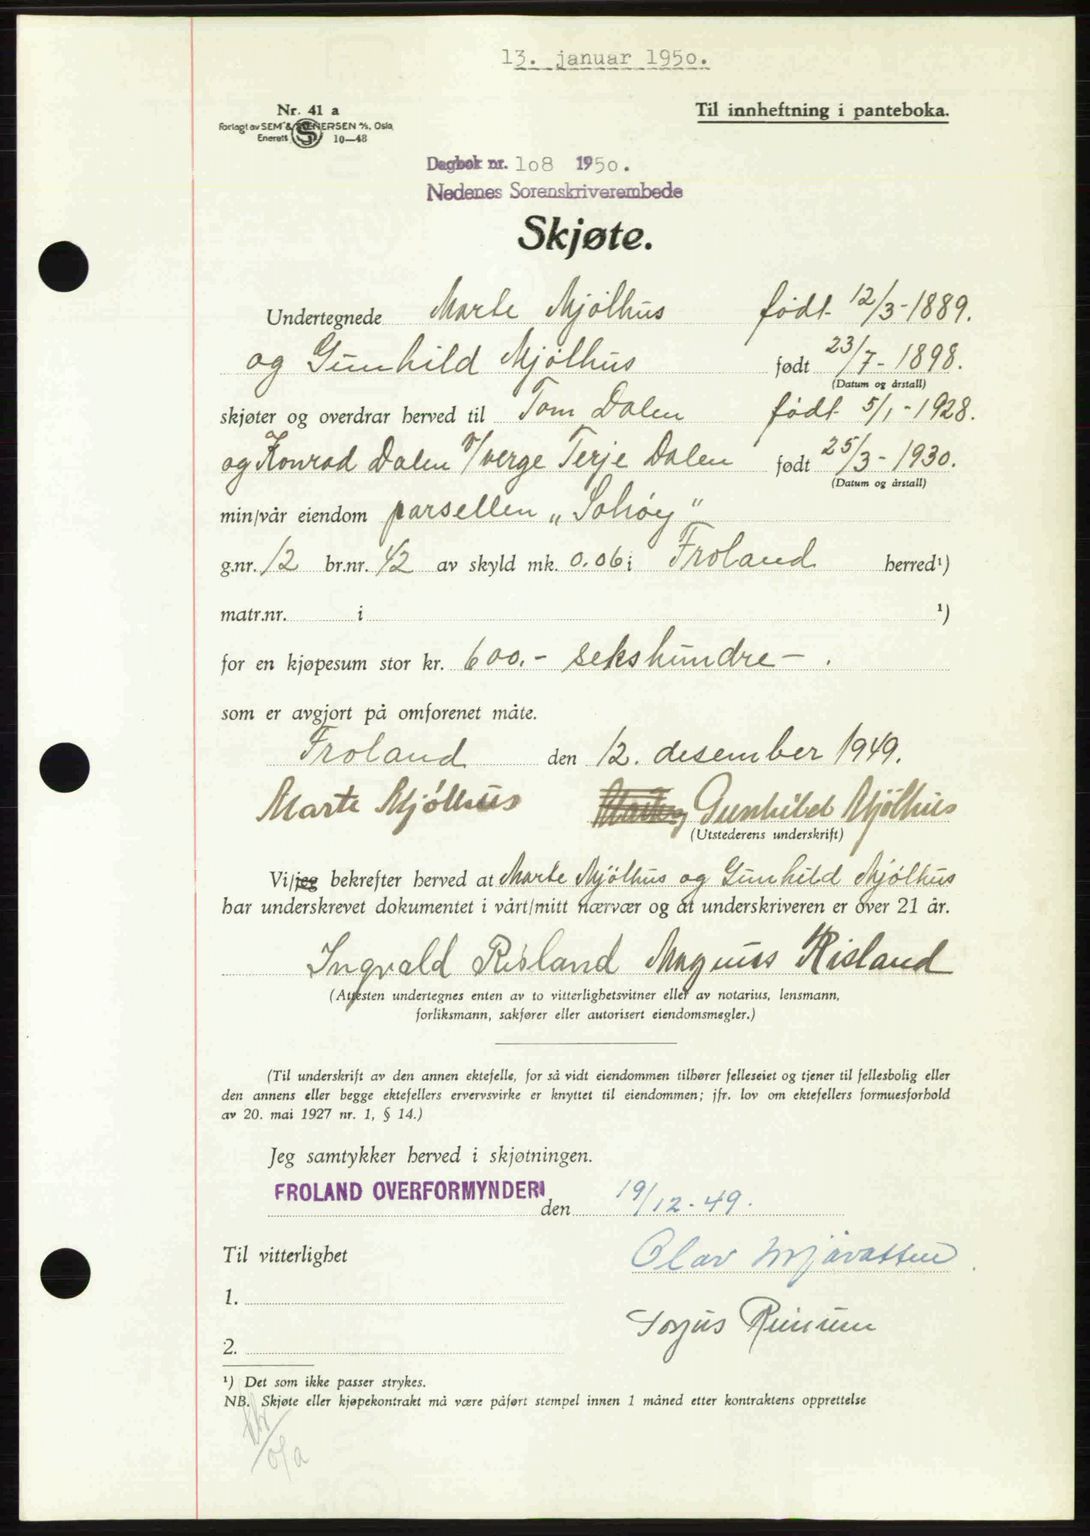 13. januar 1950.
Nr. 41 a
Til innheftning i panteboka.
Forlagt av SEM & STENERSEN A/S, Oslo
Enerett 10—48
Dagbok nr. 108 1950.
Nedenes Sorenskriverembede
Skjøte.
Undertegnede Marte Mjølhus født 12/3-1889.
og Gunhild Mjølhus født 23/7-1898.
(Datum og årstall)
skjøter og overdrar herved til Tom Dalen født 5/1-1928.
og Konrad Dalen v/verge Terje Dalen født 25/3-1930.
(Datum og årstall)
min/vår eiendom parsellen „Solhøy"
g.nr. 12 br.nr. 42 av skyld mk. 0.06 i Froland herred¹)
matr.nr. i ¹)
for en kjøpesum stor kr. 600.- sekshundre— .
som er avgjort på omforenet måte.
Froland den 12. desember 1949.
Marte Mjølhus Gunhild Mjølhus
(Utstederens underskrift)
Vi/jeg bekrefter herved at Marte Mjølhus og Gunhild Mjølhus
har underskrevet dokumentet i vårt/mitt nærvær og at underskriveren er over 21 år.
Ingvald Risland Magnus Risland
(Attesten undertegnes enten av to vitterlighetsvitner eller av notarius, lensmann,
forliksmann, sakfører eller autorisert eiendomsmegler.)
(Til underskrift av den annen ektefelle, for så vidt eiendommen tilhører felleseiet og tjener til fellesbolig eller
den annens eller begge ektefellers ervervsvirke er knyttet til eiendommen; jfr. lov om ektefellers formuesforhold
av 20. mai 1927 nr. 1, § 14.)
Jeg samtykker herved i skjøtningen.
FROLAND OVERFORMYNDERI den 19/12-49.
Til vitterlighet Olav Mjåvatten
1.
Torjus Reinum
2.
¹) Det som ikke passer strykes.
NB. Skjøte eller kjøpekontrakt må være påført stempel innen 1 måned etter kontraktens opprettelse